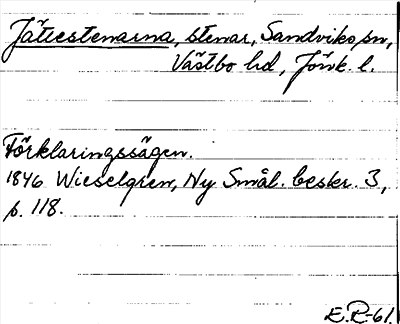 Jättestenarna, stenar, Sandviks sn,
Västbo hd, Jönk. l.
Förklaringssägen.
1846 Wieselgren, Ny Smål. beskr. 3,
p. 118.
E.R-61.